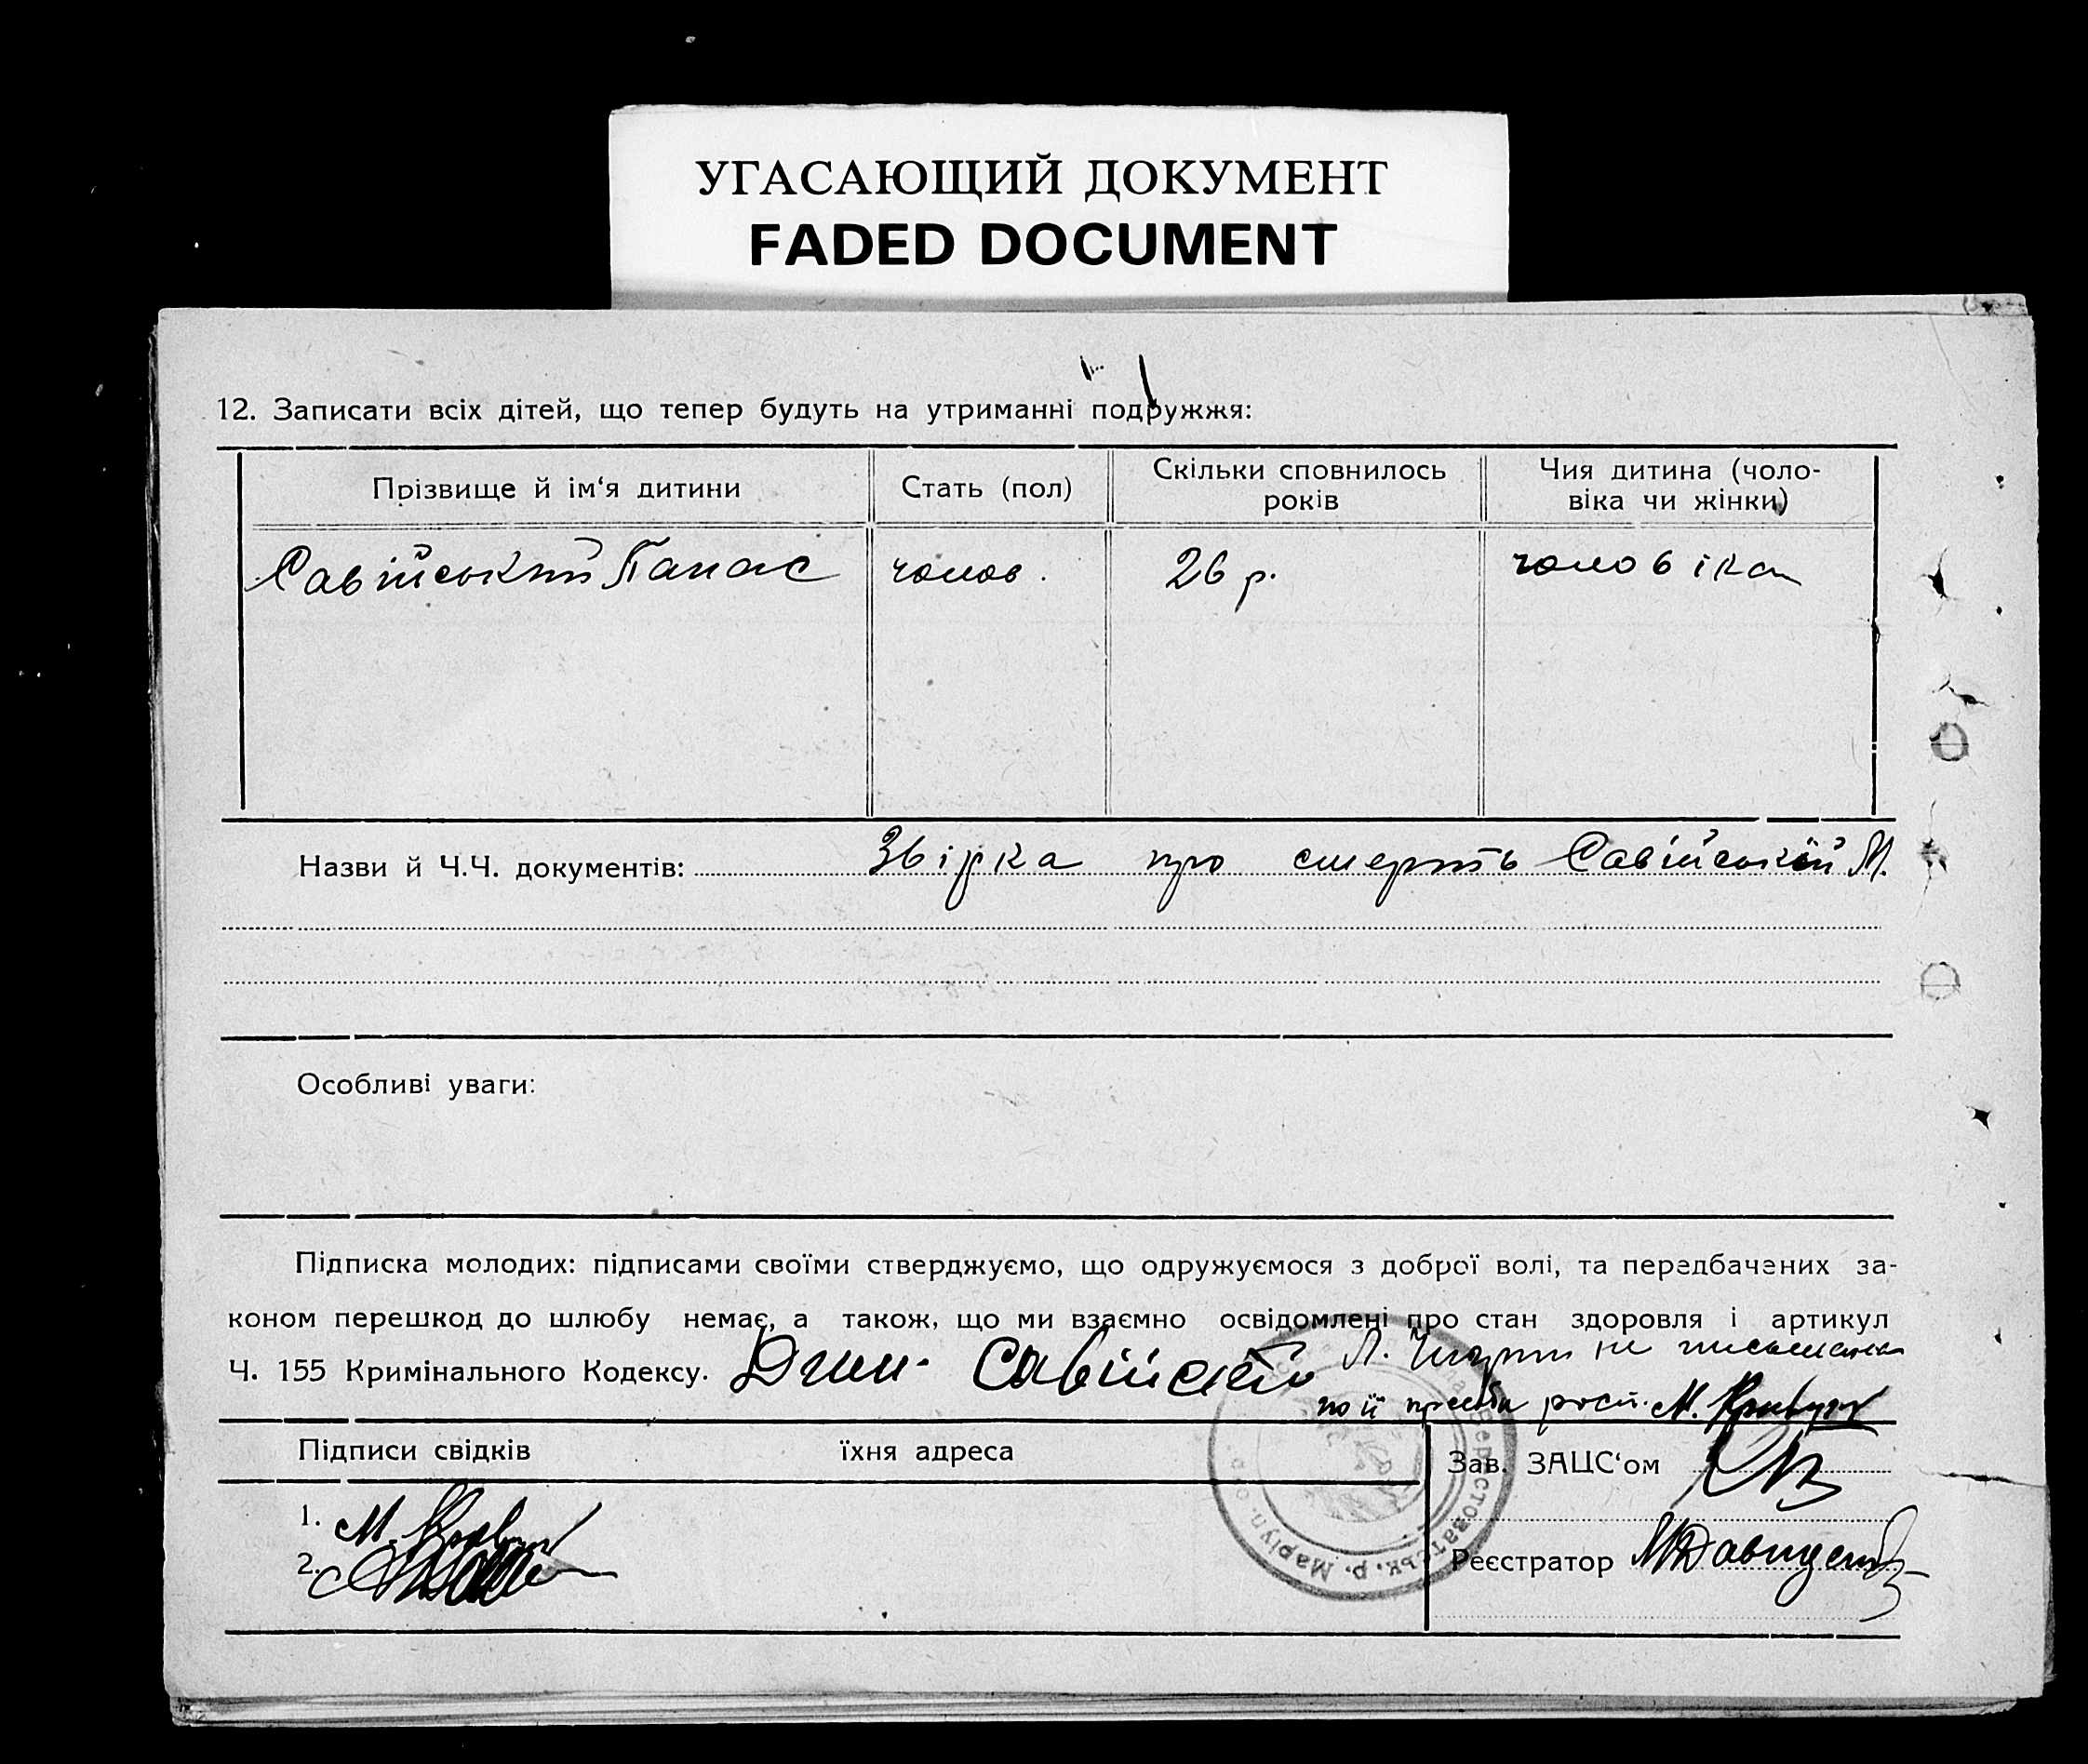 УГАСАЮЩИЙ ДОКУМЕНТ
FADED DOCUMENT
12. Записати всіх дітей, що тепер будуть на утриманні подружжя:
Прізвище й ім‘я дитини
Стать (пол)
Скільки сповнилось років
Чия дитина (чоло-
віка чи жінки)
Савійський Панас
чолов.
26 р.
чоловіка
Назви й Ч.Ч. документів: Звірка про смерть Савійській М.
Особливі уваги:
Підписка молодих: підписами своїми стверджуємо, що одружуємося з доброї волі, та передбачених за-
коном перешкод до шлюбу немає, а також, що ми взаємно освідомлені про стан здоровля і артикул
Ч. 155 Кримінального Кодексу.
Л. не письменна
по її просьби росп. М.
Підписи свідків
їхня адреса
Зав. ЗАЦС‘ом
1. М.
2.
Реєстратор
Берстоватськ. р. Маріуп. о